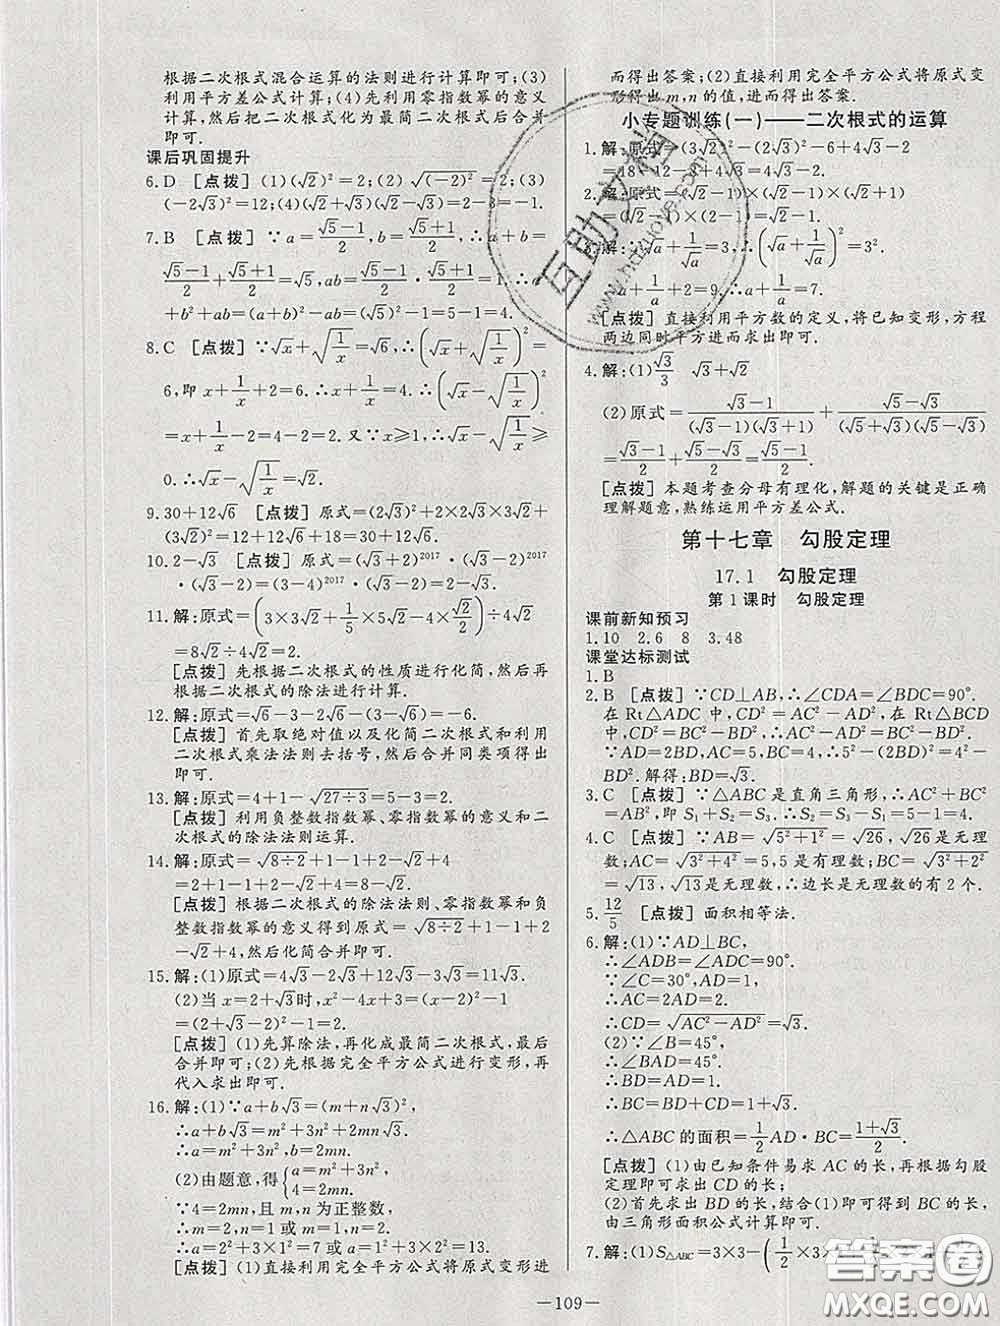 根据二次根式混合运算的法则进行计算即可;(3)
利用平方差公式计算;(4)先利用零指数幂的意义
计算,然后把二次根式化为最简二次根式后合并
即可.
课后巩固提升
6.D [点拨] (1)(√2)²=2;(2)√(-2)²=2;(3)
(-2√3)²=12;(4)(√2+√3)(√2-√3)=2-3=-1.
7.B [点拨] ∵a=(√5-1)/2,b=(√5+1)/2,∴a+b=
(√5-1)/2+(√5+1)/2=√5,ab=(√5-1)/2×(√5+1)/2=1.∴a²
+b²+ab=(a+b)²-ab=(√5)²-1=5-1=4.
8.C [点拨] ∵√x+√(1/x)=√6,∴(√x+√(1/x))²=
6,即x+1/x+2=6.∴x+1/x=4.∴(√x-√(1/x))²
=x+1/x-2=4-2=2.又∵x≥1,∴√x-√(1/x)≥
0.∴√x-√(1/x)=√2.
9.30+12√6 [点拨] 原式=(2√3)²+2×2√3×3√2+
(3√2)²=12+12√6+18=30+12√6.
10.2-√3 [点拨] 原式=(√3+2)²⁰¹⁷·(√3-2)²⁰¹⁷
·(√3-2)=(3-4)²⁰¹⁷·(√3-2)=2-√3.
11.解:原式=(3×3√2+1/5×5√2-4×√2/2)÷4√2=
8√2÷4√2=2.
[点拨] 先根据二次根式的性质进行化简,然后再
根据二次根式的除法进行计算.
12.解:原式=√6-3-2√6-(3-√6)=-6.
[点拨] 首先取绝对值以及化简二次根式和利用
二次根式乘法法则去括号,然后合并同类项得出
即可.
13.解:原式=4+1-√(27÷3)=5-3=2.
[点拨] 利用负整数指数幂、零指数幂的意义和二
次根式的除法法则运算.
14.解:原式=√(8÷2)+1-1+2-√2+4
=2+1-1+2-√2+4=8-√2.
[点拨] 根据二次根式的除法法则、零指数幂和负
整数指数幂的意义得到原式=√(8÷2)+1-1+2
-√2+4,然后化简合并即可.
15.解:(1)原式=4√3-2√3+12√3-3√3=11√3.
(2)当x=2+√3时,x²-4x+2=(x-2)²-2
=(2+√3-2)²-2=3-2=1.
[点拨] (1)先算除法,再化成最简二次根式,最后
合并即可;(2)先根据完全平方公式进行变形,再
代入求出即可.
16.解:(1)∵a+b√3=(m+n√3)²,
∴a+b√3=m²+3n²+2mn√3.
∴a=m²+3n²,b=2mn.
(2)由题意,得{a=m²+3n², 4=2mn.
∵4=2mn,且m,n为正整数,
∴m=2,n=1或m=1,n=2.
∴a=2²+3×1²=7或a=1²+3×2²=13.
[点拨] (1)直接利用完全平方公式将原式变形进
而得出答案;(2)直接利用完全平方公式将原式变
形得出m,n的值,进而得出答案.
小专题训练(一)——二次根式的运算
1.解:原式=(3√2)²-(2√3)²-6+4√3-2
=18-12-6+4√3-2=4√3-2.
2.解:原式=(√2-1)×(√2-1)×(√2+1)
=(√2-1)×(2-1)=√2-1.
3.解:√a+1/√a=3,∴(√a+1/√a)²=3².
∴a+1/a+2=9.∴a+1/a=7.
[点拨] 直接利用平方数的定义,将已知变形,方程
两边同时平方进而求出即可.
4.解:(1)√3/3 √3+√2
(2)原式=(√3-1)/((√3-1)(√3+1))+(√5-√3)/((√5+√3)(√5-√3))
=(√3-1)/2+(√5-√3)/2=(√5-1)/2.
[点拨] 本题考查分母有理化,解题的关键是正确
理解题意,熟练运用平方差公式.
第十七章 勾股定理
17.1 勾股定理
第1课时 勾股定理
课前新知预习
1.10 2.6 8 3.48
课堂达标测试
1.B
2.B [点拨] ∵CD⊥AB,∴∠CDA=∠BDC=90°.
在Rt△ADC中,CD²=AC²-AD²,在Rt△BCD
中,CD²=BC²-BD²,∴AC²-AD²=BC²-BD².
∵AD=2BD,AC=5,BC=4,∴5²-(2BD)²=4²-
BD².解得:BD=√3.
3.C [点拨] ∵△ABC是直角三角形,∴AC²+BC²
=AB²,即S₁+S₂=S₃.∴S₂=S₃-S₁=9-4=5.
4.C [点拨] ∵AB=√(5²+1²)=√26,√26是无理
数;AC=√(3²+4²)=5,5是有理数;BC=√(3²+2²)
=√13,√13是无理数,∴边长是无理数的有2个.
5.12/5 [点拨] 面积相等法.
6.解:(1)∵AD⊥BC,
∴∠ADB=∠ADC=90°.
∵∠C=30°,AD=1,
∴AC=2AD=2.
∴CD=√(AC²-AD²)=√3.
(2)∵∠B=45°,
∴∠BAD=45°.
∴BD=AD=1.
∴BC=BD+CD=1+√3.
∴△ABC的面积=1/2AD·BC=(1+√3)/2.
[点拨] (1)由已知条件易求AC的长,再根据勾股
定理即可求出CD的长;
(2)首先求出BD的长,结合(1)即可得到BC的长,
由三角形面积公式计算即可.
7.解:(1)S△ABC=3×3-(1/2×3×
—109—
互助文档
www.hdzuoye.com
答案圈
MXQE.COM